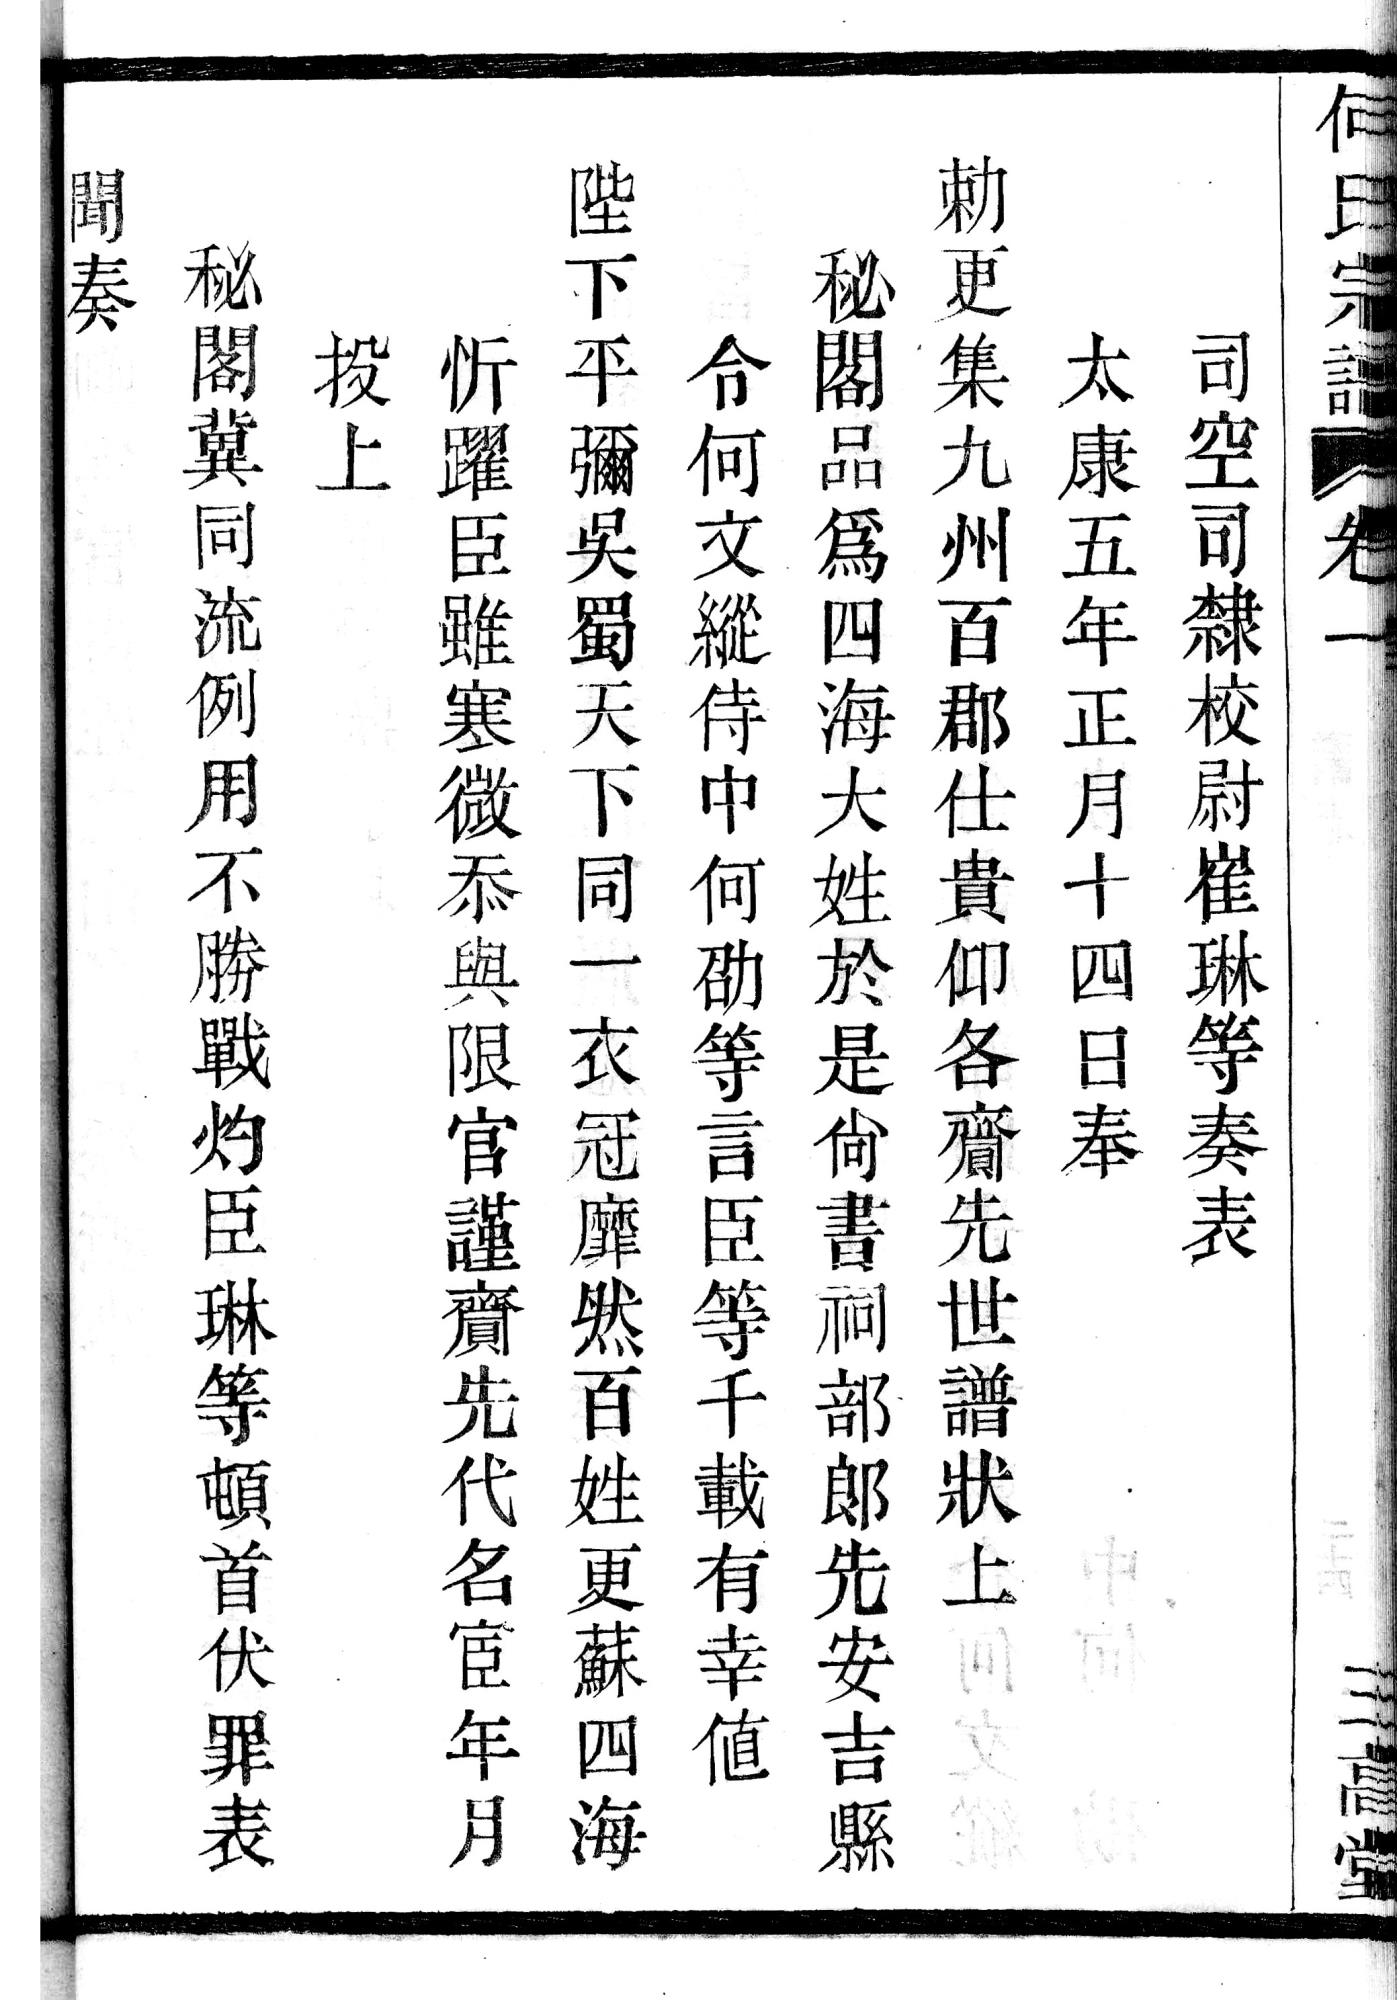 何氏宗譜 卷一 三高堂
司空司隸校尉崔琳等奏表
太康五年正月十四日奉
勅更集九州百郡仕貴仰各齎先世譜狀上
秘閣品爲四海大姓於是尙書祠部郎先安吉縣
令何文縱侍中何劭等言臣等千載有幸値
陛下平彌吳蜀天下同一衣冠靡然百姓更蘇四海
忻躍臣雖寒微忝與限官謹齎先代名宦年月
投上
秘閣冀同流例用不勝戰灼臣琳等頓首伏罪表
聞奏